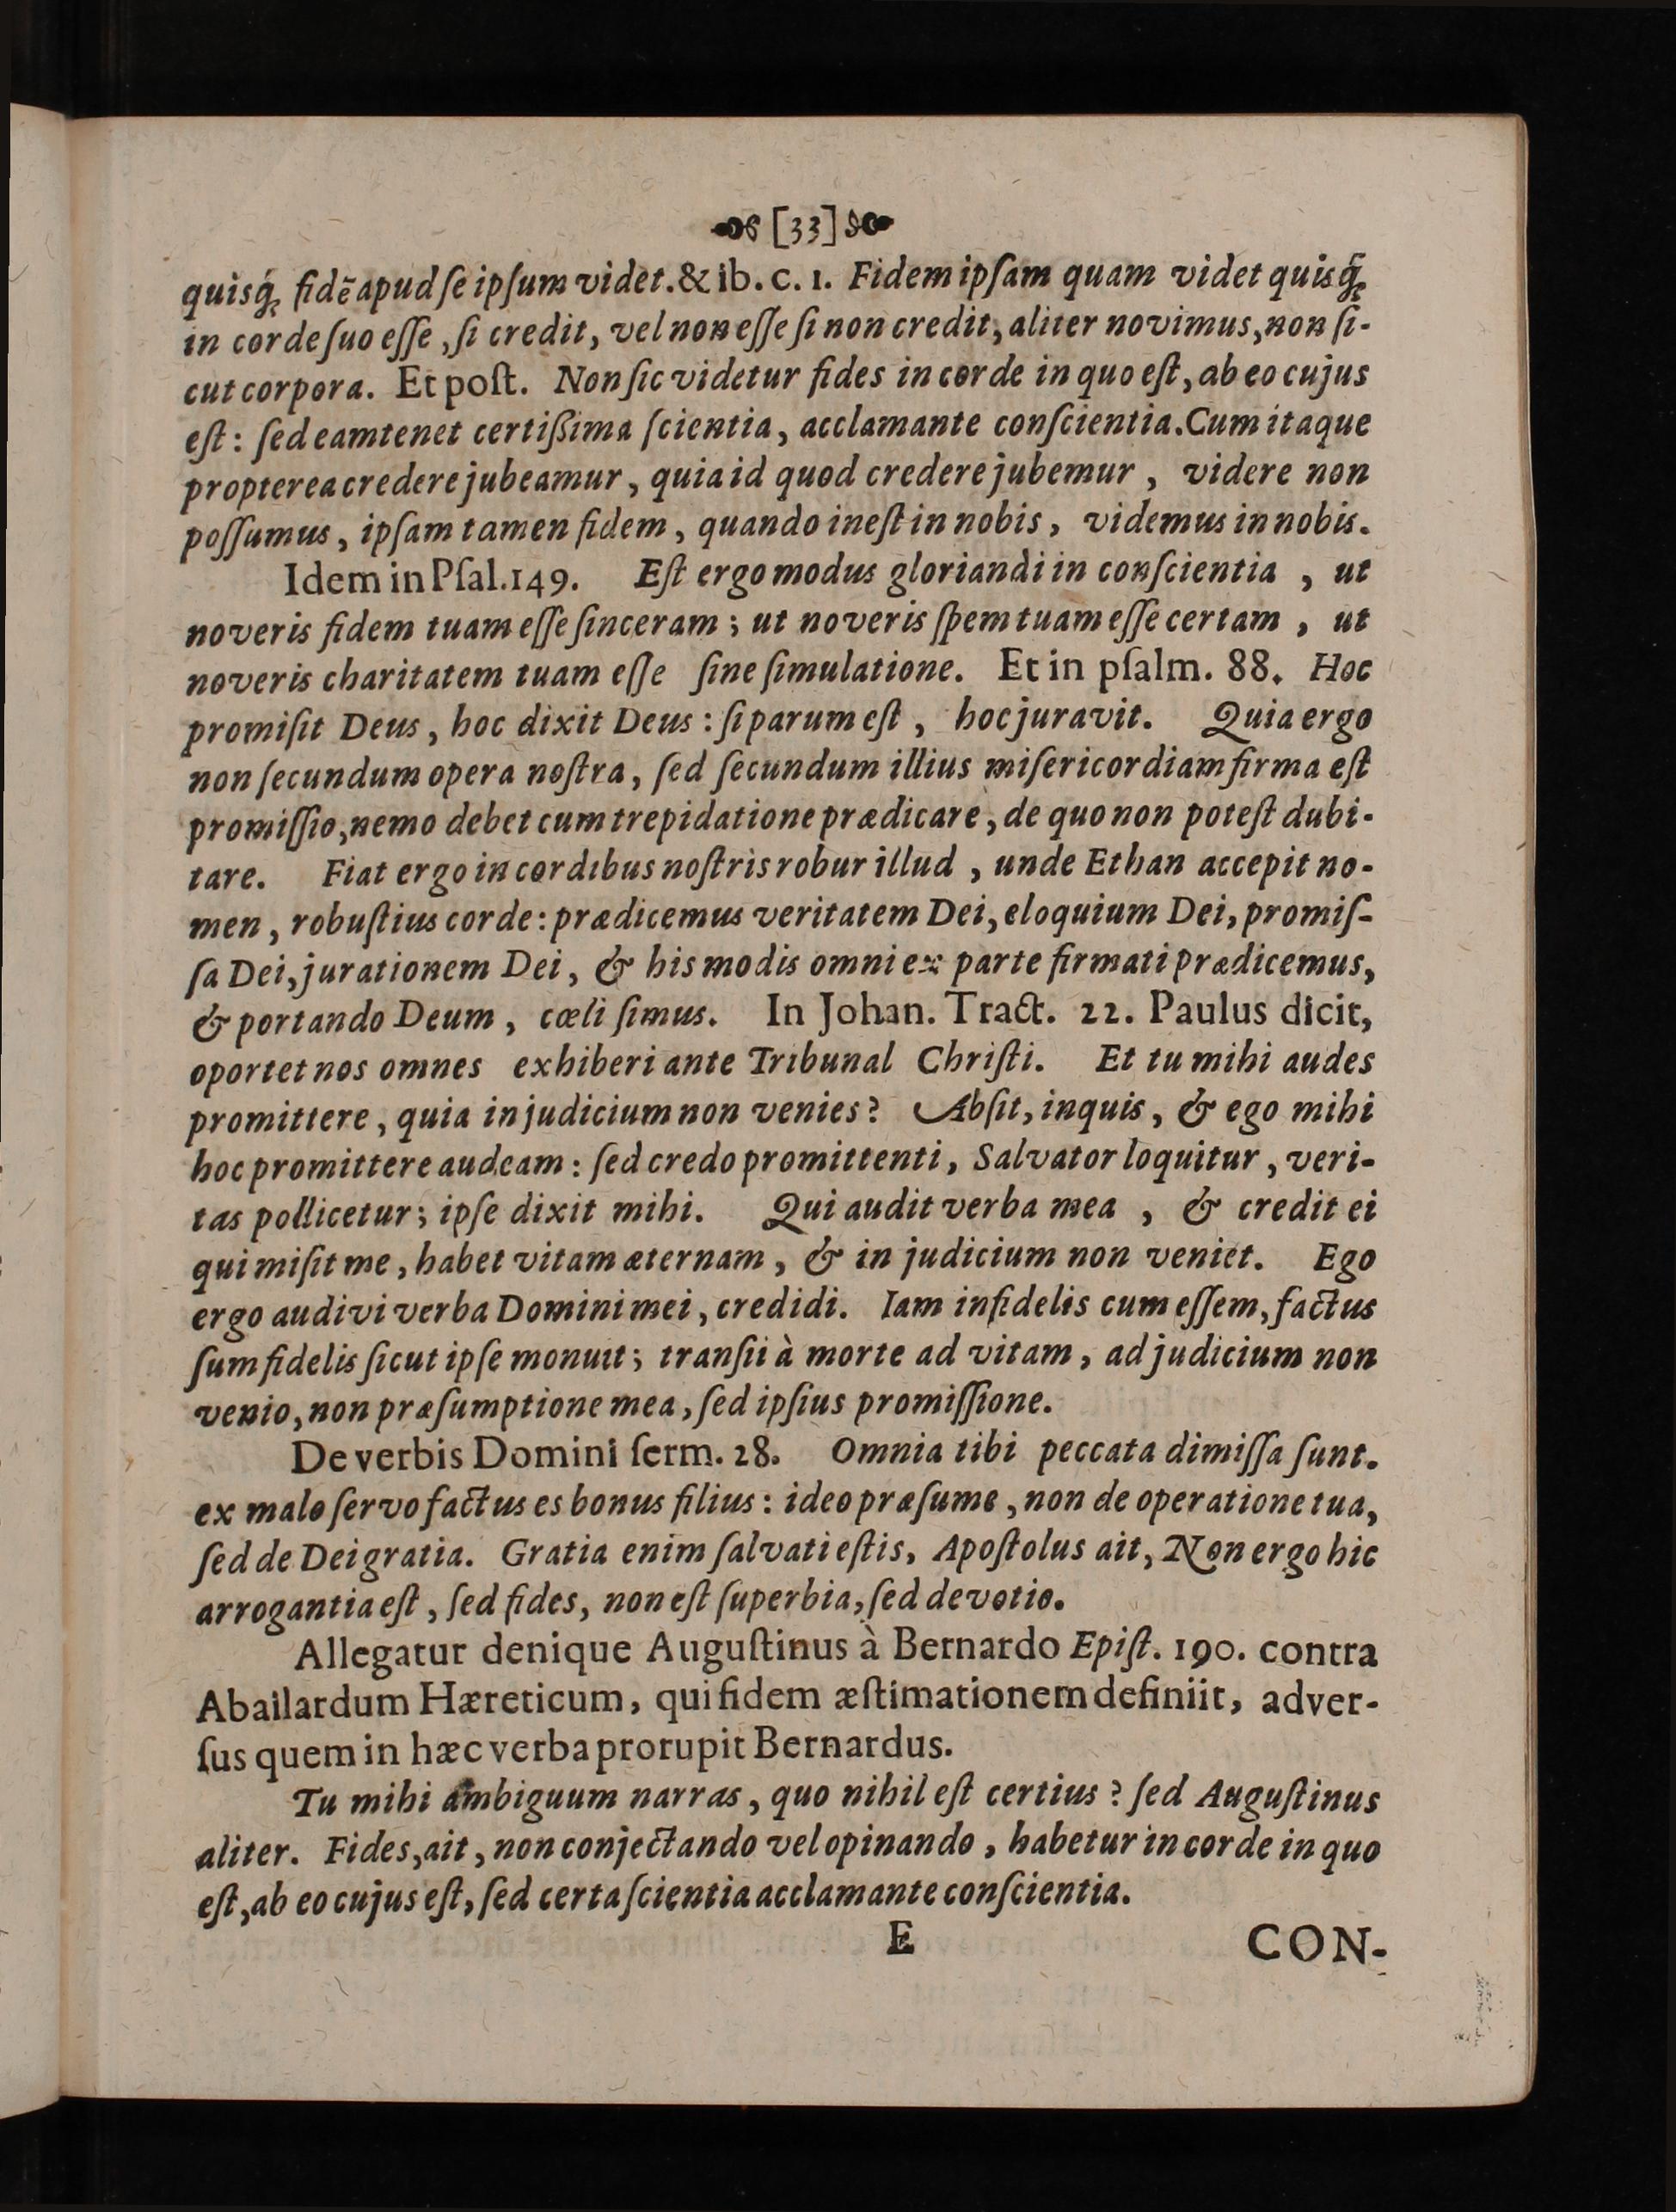 [33]
quisq́ꝫ fidē apud ſe ipſum videt. & ib. c. 1. Fidem ipſam quam videt quisq́ꝫ
in corde ſuo eſſe, ſi credit, vel non eſſe ſi non credit, aliter novimus, non ſi-
cut corpora. Et poſt. Non ſic videtur fides in corde in quo eſt, ab eo cujus
eſt: ſed eam tenet certißima ſcientia, acclamante conſcientia. Cum itaque
propterea credere jubeamur, quia id quod credere jubemur, videre non
poſſumus, ipſam tamen fidem, quando ineſt in nobis, videmus in nobis.
Idem in Pſal. 149. Eſt ergo modus gloriandi in conſcientia, ut
noveris fidem tuam eſſe ſinceram; ut noveris ſpem tuam eſſe certam, ut
noveris charitatem tuam eſſe ſine ſimulatione. Et in pſalm. 88. Hoc
promiſit Deus, hoc dixit Deus: ſi parum eſt, hoc juravit. Quia ergo
non ſecundum opera noſtra, ſed ſecundum illius miſericordiam firma eſt
promiſſio, nemo debet cum trepidatione prædicare, de quo non poteſt dubi-
tare. Fiat ergo in cordibus noſtris robur illud, unde Ethan accepit no-
men, robuſtius corde: prædicemus veritatem Dei, eloquium Dei, promiſ-
ſa Dei, jurationem Dei, & his modis omni ex parte firmati prædicemus,
& portando Deum, cœli ſimus. In Johan. Tract. 22. Paulus dicit,
oportet nos omnes exhiberi ante Tribunal Chriſti. Et tu mihi audes
promittere, quia in judicium non venies? Abſit, inquis, & ego mihi
hoc promittere audeam: ſed credo promittenti, Salvator loquitur, veri-
tas pollicetur; ipſe dixit mihi. Qui audit verba mea, & credit ei
qui miſit me, habet vitam æternam, & in judicium non veniet. Ego
ergo audivi verba Domini mei, credidi. Iam infidelis cum eſſem, factus
ſum fidelis ſicut ipſe monuit; tranſii à morte ad vitam, ad judicium non
venio, non præſumptione mea, ſed ipſius promiſſione.
De verbis Domini ſerm. 28. Omnia tibi peccata dimiſſa ſunt.
ex malo ſervo factus es bonus filius: ideo præſume, non de operatione tua,
ſed de Dei gratia. Gratia enim ſalvati eſtis, Apoſtolus ait, Non ergo hic
arrogantia eſt, ſed fides, non eſt ſuperbia, ſed devotio.
Allegatur denique Auguſtinus à Bernardo Epiſt. 190. contra
Abailardum Hæreticum, qui fidem æſtimationem definiit, adver-
ſus quem in hæc verba prorupit Bernardus.
Tu mihi ambiguum narras, quo nihil eſt certius? ſed Auguſtinus
aliter. Fides, ait, non conjectando vel opinando, habetur in corde in quo
eſt, ab eo cujus eſt, ſed certa ſcientia acclamante conſcientia.
E CON-